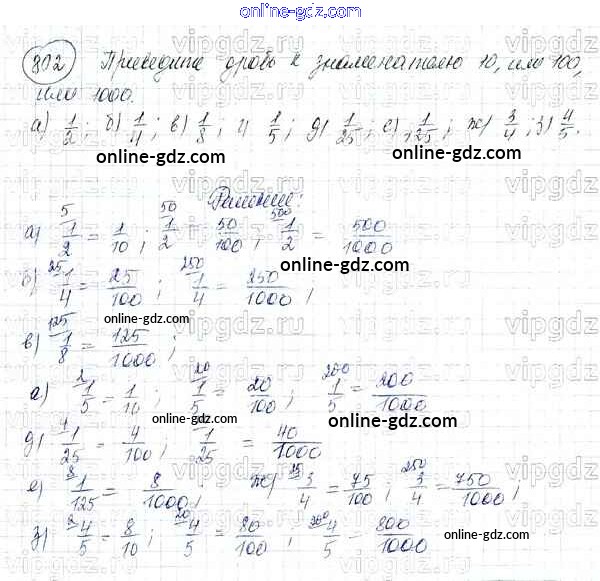 online-gdz.com
802 Приведите дробь к знаменателю 10, или 100,
или 1000.
а) 1/2; б) 1/4; в) 1/8; г) 1/5; д) 1/25; е) 1/125; ж) 3/4; з) 4/5.
online-gdz.com online-gdz.com
Решение:
а) 5 1/2 = 1/10; 50 1/2 50/100; 500 1/2 = 500/1000
online-gdz.com
б) 25 1/4 = 25/100; 250 1/4 = 250/1000;
online-gdz.com
в) 125 1/8 = 125/1000;
г) 2 1/5 = 1/10; 20 1/5 = 20/100; 200 1/5 = 200/1000
online-gdz.com online-gdz.com
д) 4 1/25 = 4/100; 1/25 = 40/1000
online-gdz.com
е) 8 1/125 = 8/1000; ж) 25 3/4 = 75/100; 250 3/4 = 750/1000;
з) 2 4/5 = 8/10; 20 4/5 = 80/100; 200 4/5 = 800/1000
online-gdz.com